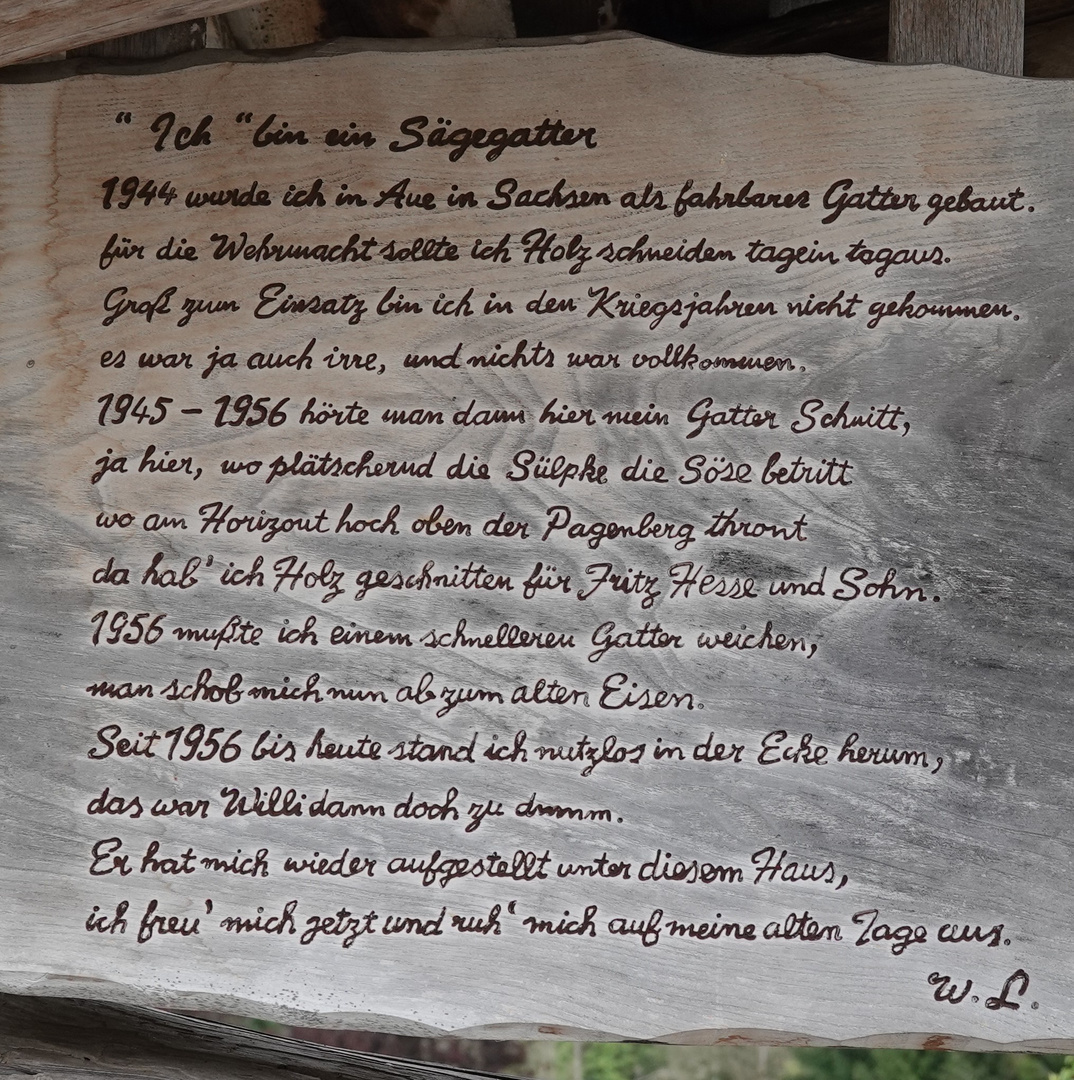 " Ich " bin ein Sägegatter
1944 wurde ich in Aue in Sachsen als fahrbares Gatter gebaut.
für die Wehrmacht sollte ich Holz schneiden tagein tagaus.
Groß zum Einsatz bin ich in den Kriegsjahren nicht gekommen.
es war ja auch irre, und nichts war vollkommen.
1945 – 1956 hörte man dann hier mein Gatter Schnitt,
ja hier, wo plätschernd die Sülpke die Söse betritt
wo am Horizont hoch oben der Pagenberg thront
da hab' ich Holz geschnitten für Fritz Hesse und Sohn.
1956 mußte ich einem schnelleren Gatter weichen,
man schob mich nun ab zum alten Eisen.
Seit 1956 bis heute stand ich nutzlos in der Ecke herum,
das war Willi dann doch zu dumm.
Er hat mich wieder aufgestellt unter diesem Haus,
ich freu' mich jetzt und ruh' mich auf meine alten Tage aus.
W. L.